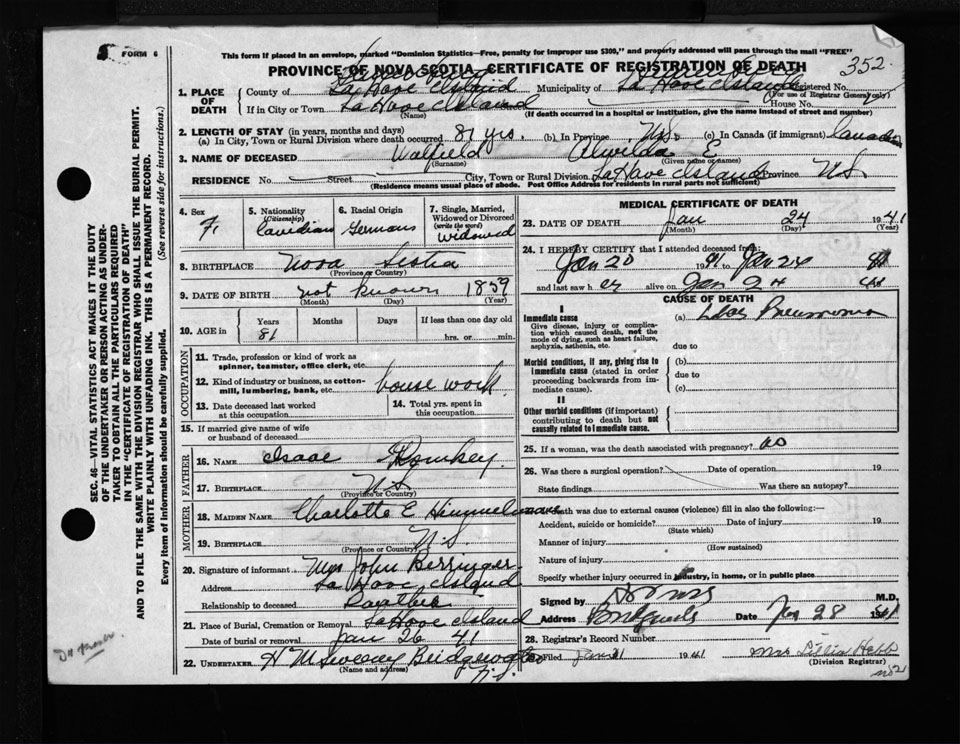 FORM 6
This form if placed in an envelope, marked "Dominion Statistics—Free, penalty for improper use $300," and properly addressed will pass through the mail "FREE"
PROVINCE OF NOVA SCOTIA, CERTIFICATE OF REGISTRATION OF DEATH
352
1. PLACE OF DEATH
County of La Have Island Municipality of La Have Island Registered No.
(For use of Registrar General only)
If in City or Town La Have Island House No.
(Name) (If death occurred in a hospital or institution, give the name instead of street and number)
2. LENGTH OF STAY (in years, months and days)
(a) In City, Town or Rural Division where death occurred 81 yrs. (b) In Province N.S. (c) In Canada (if immigrant) Canada
3. NAME OF DECEASED Walfield Alwilda E
(Surname) (Given name or names)
RESIDENCE No. Street City, Town or Rural Division La Have Island Province N.S.
(Residence means usual place of abode. Post Office Address for residents in rural parts not sufficient)
4. Sex F.
5. Nationality (Citizenship) Canidian
6. Racial Origin Germans
7. Single, Married, Widowed or Divorced (write the word) Widowed
8. BIRTHPLACE Nova Scotia
(Province or Country)
9. DATE OF BIRTH not known 1859
(Month) (Day) (Year)
10. AGE in Years Months Days If less than one day old
81 hrs. or min.
OCCUPATION
11. Trade, profession or kind of work as spinner, teamster, office clerk, etc.
12. Kind of industry or business, as cotton-mill, lumbering, bank, etc. house work
13. Date deceased last worked at this occupation
14. Total yrs. spent in this occupation
15. If married give name of wife or husband of deceased
FATHER
16. NAME Isaac Romkey
17. BIRTHPLACE N.S.
(Province or Country)
MOTHER
18. MAIDEN NAME Charlotte E Himmelman
19. BIRTHPLACE N.S.
(Province or Country)
20. Signature of informant Mrs John Berringer
Address La Have Island
Relationship to deceased
21. Place of Burial, Cremation or Removal La Have Island
Date of burial or removal Jan 26 41
22. UNDERTAKER H McSweeney Bridgewater
(Name and address) N.S.
MEDICAL CERTIFICATE OF DEATH
23. DATE OF DEATH Jan 24 1941
(Month) (Day) (Year)
24. I HEREBY CERTIFY that I attended deceased from:
Jan 20 1941 Jan 24 41
and last saw her alive on Jan 24 41
CAUSE OF DEATH
I
Immediate cause (a) Pneumonia
Give disease, injury or complication which caused death, not the mode of dying, such as heart failure, asphyxia, asthenia, etc.
due to
Morbid conditions, if any, giving rise to immediate cause (stated in order proceeding backwards from immediate cause).
(b)
due to
(c)
II
Other morbid conditions (if important) contributing to death but not causally related to immediate cause.
25. If a woman, was the death associated with pregnancy? no
26. Was there a surgical operation? Date of operation 19
State findings Was there an autopsy?
death was due to external causes (violence) fill in also the following:—
Accident, suicide or homicide? Date of injury 19
(State which)
Manner of injury
(How sustained)
Nature of injury
Specify whether injury occurred in industry, in home, or in public place
Signed by M.D.
Address Date 28 1941
28. Registrar's Record Number
Filed Jan 31 1941 Mrs Lillia Hebb
(Division Registrar)
no 21
SEC. 46—VITAL STATISTICS ACT MAKES IT THE DUTY
OF THE UNDERTAKER OR PERSON ACTING AS UNDER-
TAKER TO OBTAIN ALL THE PARTICULARS REQUIRED
IN THE "CERTIFICATE OF REGISTRATION OF DEATH"
AND TO FILE THE SAME WITH THE DIVISION REGISTRAR WHO SHALL ISSUE THE BURIAL PERMIT.
WRITE PLAINLY WITH UNFADING INK. THIS IS A PERMANENT RECORD.
Every item of information should be carefully supplied. (See reverse side for instructions.)